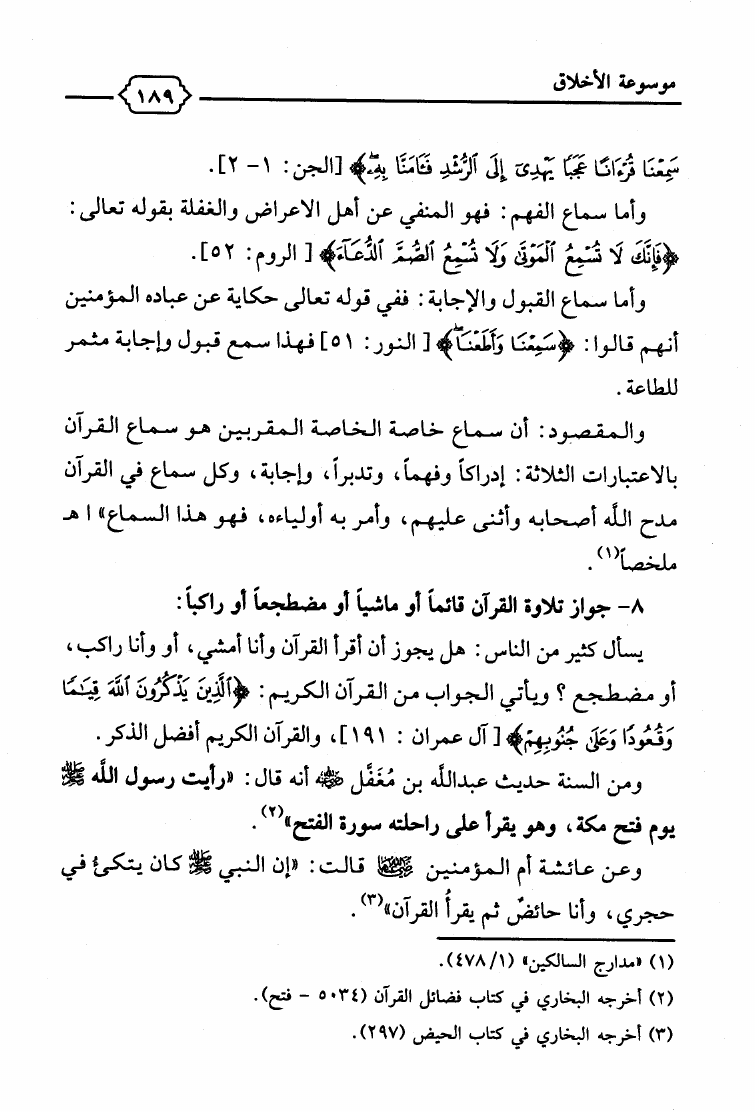 موسوعة الأخلاق
١٨٩
سَمِعْنَا قُرْءَانًا عَجَبًا يَهْدِىٓ إِلَى ٱلرُّشْدِ فَـَٔامَنَّا بِهِۦۖ﴾ [الجن: ١- ٢].
وأما سماع الفهم: فهو المنفي عن أهل الاعراض والغفلة بقوله تعالى:
﴿فَإِنَّكَ لَا تُسْمِعُ ٱلْمَوْتَىٰ وَلَا تُسْمِعُ ٱلصُّمَّ ٱلدُّعَآءَ﴾ [ الروم: ٥٢].
وأما سماع القبول والإجابة: ففي قوله تعالى حكاية عن عباده المؤمنين
أنهم قالوا: ﴿سَمِعْنَا وَأَطَعْنَاۖ﴾ [ النور: ٥١] فهذا سمع قبول وإجابة مثمر
للطاعة.
والمقصود: أن سماع خاصة الخاصة المقربين هو سماع القرآن
بالاعتبارات الثلاثة: إدراكاً وفهماً، وتدبراً، وإجابة، وكل سماع في القرآن
مدح الله أصحابه وأثنى عليهم، وأمر به أولياءه، فهو هذا السماع» ا هـ
ملخصاً(١).
٨- جواز تلاوة القرآن قائماً أو ماشياً أو مضطجعاً أو راكباً:
يسأل كثير من الناس: هل يجوز أن أقرأ القرآن وأنا أمشي، أو وأنا راكب،
أو مضطجع ؟ ويأتي الجواب من القرآن الكريم: ﴿ٱلَّذِينَ يَذْكُرُونَ ٱللَّهَ قِيَٰمًا
وَقُعُودًا وَعَلَىٰ جُنُوبِهِمْ﴾ [ آل عمران : ١٩١]، والقرآن الكريم أفضل الذكر.
ومن السنة حديث عبدالله بن مُغَفَّل رضي الله عنه أنه قال: «رأيت رسول الله ﷺ
يوم فتح مكة، وهو يقرأ على راحلته سورة الفتح»(٢).
وعن عائشة أم المؤمنين رضي الله عنها قالت: «إن النبي ﷺ كان يتكئُ في
حجري، وأنا حائضٌ ثم يقرأُ القرآن»(٣).
(١) «مدارج السالكين» (٤٧٨/١).
(٢) أخرجه البخاري في كتاب فضائل القرآن (٥٠٣٤ - فتح).
(٣) أخرجه البخاري في كتاب الحيض (٢٩٧).